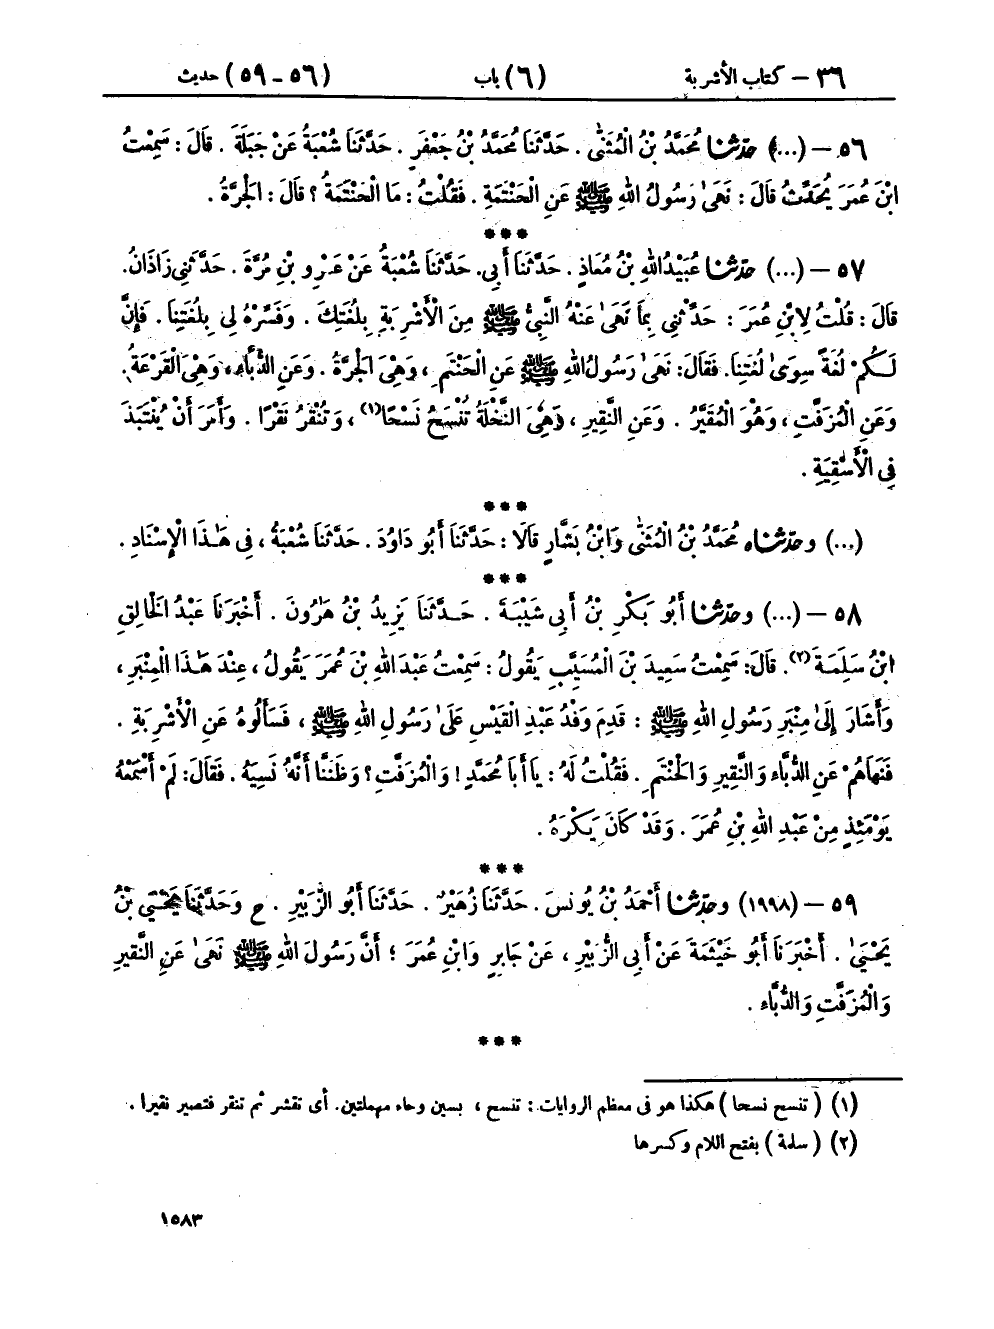 ٣٦ – كتاب الأشربة (٦) باب (٥٦ – ٥٩) حديث
٥٦ – (...) حدّثنا مُحَمَّدُ بْنُ الْمُثَنَّى . حَدَّثَنَا مُحَمَّدُ بْنُ جَعْفَرٍ . حَدَّثَنَا شُعْبَةُ عَنْ جَبَلَةَ . قَالَ : سَمِعْتُ
ابْنَ عُمَرَ يُحَدِّثُ قَالَ : نَهَىٰ رَسُولُ اللهِ ﷺ عَنِ الْحَنْتَمَةِ . فَقُلْتُ : مَا الْحَنْتَمَةُ ؟ قَالَ : الْجَرَّةُ .
***
٥٧ – (...) حدّثنا عُبَيْدُاللهِ بْنُ مُعَاذٍ . حَدَّثَنَا أَبِي. حَدَّثَنَا شُعْبَةُ عَنْ عَمْرِو بْنِ مُرَّةَ . حَدَّثَنِي زَاذَانُ.
قَالَ : قُلْتُ لِابْنِ عُمَرَ : حَدِّثْنِي بِمَا نَهَىٰ عَنْهُ النَّبِيُّ ﷺ مِنَ الْأَشْرِبَةِ بِلُغَتِكَ . وَفَسِّرْهُ لِي بِلُغَتِنَا . فَإِنَّ
لَكُمْ لُغَةً سِوَىٰ لُغَتِنَا. فَقَالَ: نَهَىٰ رَسُولُ اللهِ ﷺ عَنِ الْحَنْتَمِ ، وَهِيَ الْجَرَّةُ . وَعَنِ الدُّبَّاءِ، وَهِيَ الْقَرْعَةُ.
وَعَنِ الْمُزَفَّتِ ، وَهُوَ الْمُقَيَّرُ . وَعَنِ النَّقِيرِ ، وَهْيَ النَّخْلَةُ تُنْسَحُ نَسْحًا(١) ، وَتُنْقَرُ نَقْرًا . وَأَمَرَ أَنْ يُنْتَبَذَ
فِي الْأَسْقِيَةِ .
***
(...) وحدّثناه مُحَمَّدُ بْنُ الْمُثَنَّى وَابْنُ بَشَّارٍ قَالَا : حَدَّثَنَا أَبُو دَاوُدَ . حَدَّثَنَا شُعْبَةُ ، فِي هَٰذَا الْإِسْنَادِ .
***
٥٨ – (...) وحدّثنا أَبُو بَكْرِ بْنُ أَبِي شَيْبَةَ . حَدَّثَنَا يَزِيدُ بْنُ هَارُونَ . أَخْبَرَنَا عَبْدُ الْخَالِقِ
ابْنُ سَلِمَةَ(٢). قَالَ: سَمِعْتُ سَعِيدَ بْنَ الْمُسَيَّبِ يَقُولُ : سَمِعْتُ عَبْدَ اللهِ بْنَ عُمَرَ يَقُولُ ، عِنْدَ هَٰذَا الْمِنْبَرِ ،
وَأَشَارَ إِلَىٰ مِنْبَرِ رَسُولِ اللهِ ﷺ : قَدِمَ وَفْدُ عَبْدِ الْقَيْسِ عَلَىٰ رَسُولِ اللهِ ﷺ ، فَسَأَلُوهُ عَنِ الْأَشْرِبَةِ .
فَنَهَاهُمْ عَنِ الدُّبَّاءِ وَالنَّقِيرِ وَالْحَنْتَمِ . فَقُلْتُ لَهُ : يَا أَبَا مُحَمَّدٍ ! وَالْمُزَفَّتِ ؟ وَظَنَنَّا أَنَّهُ نَسِيَهُ . فَقَالَ: لَمْ أَسْمَعْهُ
يَوْمَئِذٍ مِنْ عَبْدِ اللهِ بْنِ عُمَرَ . وَقَدْ كَانَ يَكْرَهُ .
***
٥٩ – (١٩٩٨) وحدّثنا أَحْمَدُ بْنُ يُونُسَ . حَدَّثَنَا زُهَيْرٌ . حَدَّثَنَا أَبُو الزُّبَيْرِ . ح وَحَدَّثَنَا يَحْيَىٰ بْنُ
يَحْيَىٰ . أَخْبَرَنَا أَبُو خَيْثَمَةَ عَنْ أَبِي الزُّبَيْرِ ، عَنْ جَابِرٍ وَابْنِ عُمَرَ ؛ أَنَّ رَسُولَ اللهِ ﷺ نَهَىٰ عَنِ النَّقِيرِ
وَالْمُزَفَّتِ وَالدُّبَّاءِ .
***
(١) ( تنسح نسحا ) هكذا هو فى معظم الروايات : تنسح ، بسين وحاء مهملتين. أى تقشر ثم تنقر فتصير نقيرا .
(٢) ( سلمة ) بفتح اللام وكسرها
١٥٨٣